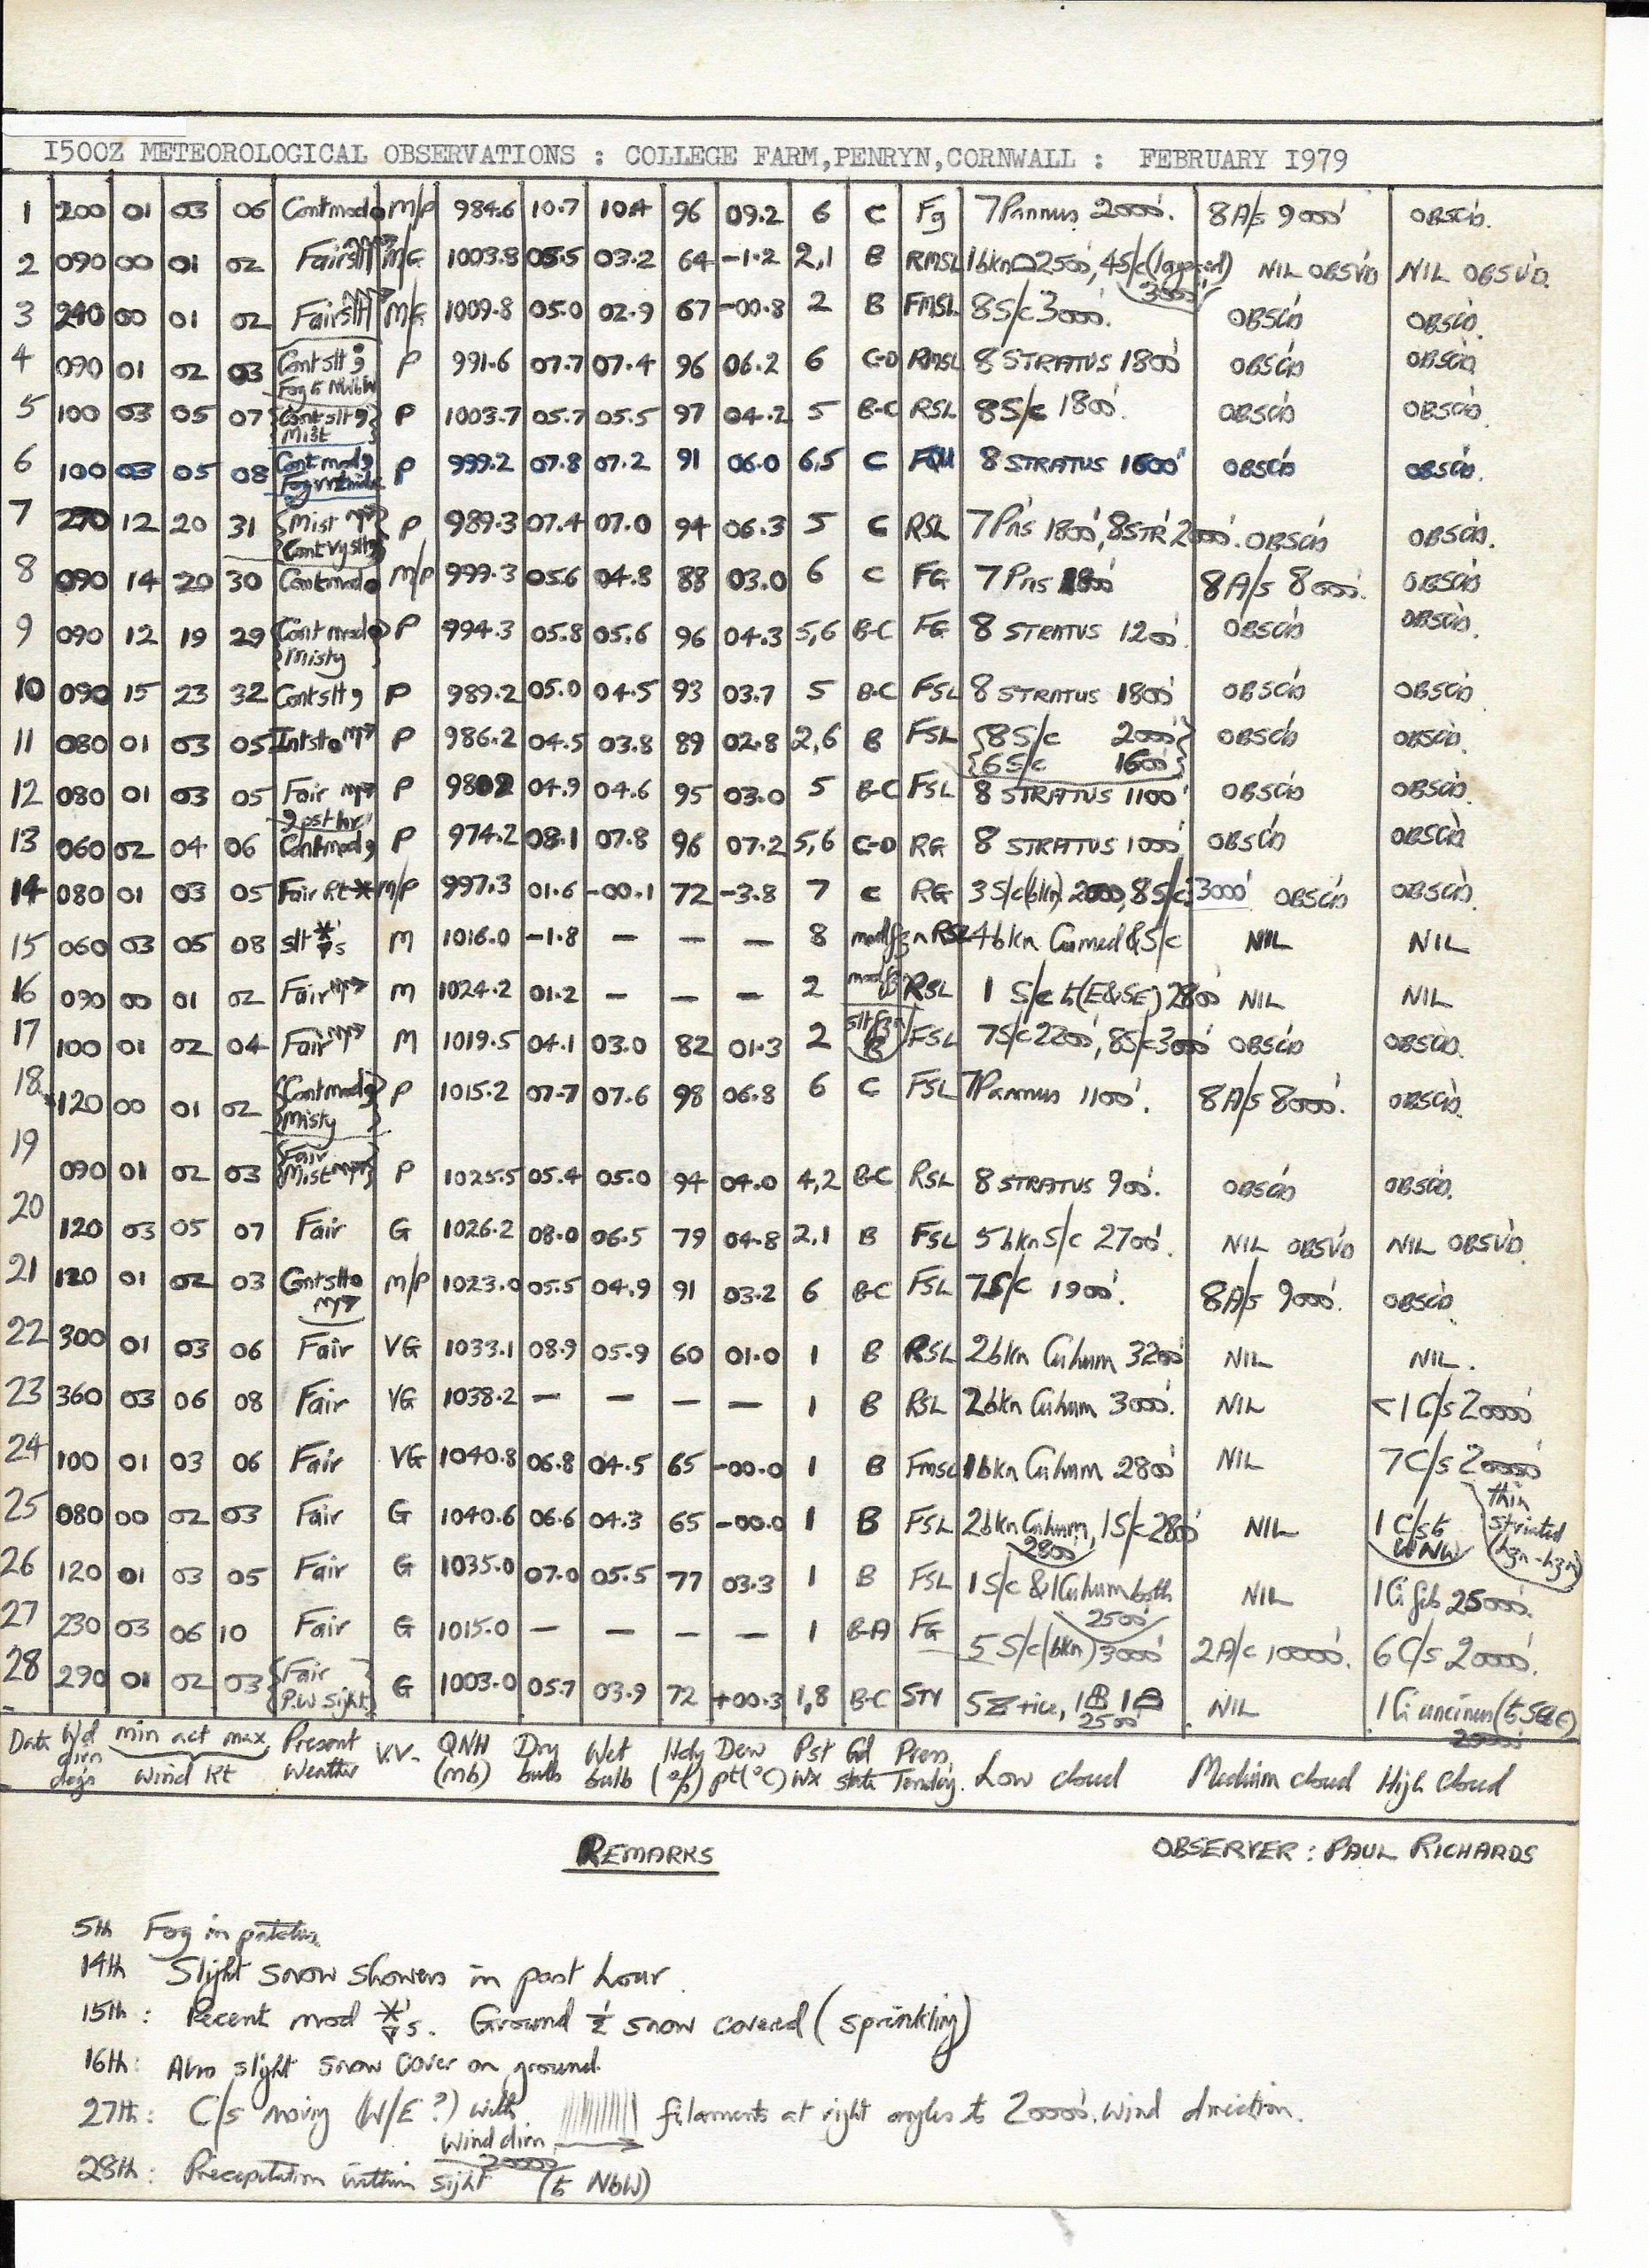 1500Z METEOROLOGICAL OBSERVATIONS : COLLEGE FARM,PENRYN,CORNWALL : FEBRUARY 1979
1 200 01 03 06 Contmod M/P 984.6 10.7 10.4 96 09.2 6 C Fg 7Pannus 2000'. 8A/s 9000' OBSC'D.
2 090 00 01 02 Fair slt M/G 1003.8 05.5 03.2 64 -1.2 2,1 B RMSL 1bkn 2500', 4S/c (layered) 3000' NIL OBSV'D NIL OBSV'D.
3 240 00 01 02 Fair slt M/G 1009.8 05.0 02.9 67 -00.8 2 B FMSL 8S/c 3000'. OBSC'D OBSC'D.
4 090 01 02 03 Cont slt Fog to NWbW P 991.6 07.7 07.4 96 06.2 6 C-D RMSL 8 STRATUS 1800' OBSC'D OBSC'D
5 100 03 05 07 Cont slt Mist P 1003.7 05.7 05.5 97 04.2 5 B-C RSL 8S/c 1800'. OBSC'D OBSC'D.
6 100 03 05 08 Cont mod Fog P 999.2 07.8 07.2 91 06.0 6,5 C 8 STRATUS 1600' OBSC'D OBSC'D.
7 270 12 20 31 Mist Cont vy slt P 989.3 07.4 07.0 94 06.3 5 C RSL 7Pns 1800', 8STR 2000'. OBSC'D OBSC'D.
8 090 14 20 30 Contmod M/P 999.3 05.6 04.8 88 03.0 6 C FG 7Pns 1800' 8A/s 8000'. OBSC'D
9 090 12 19 29 Cont mod Misty P 994.3 05.8 05.6 96 04.3 5,6 B-C FG 8 STRATUS 1200'. OBSC'D OBSC'D.
10 090 15 23 32 Cont slt P 989.2 05.0 04.5 93 03.7 5 B-C FSL 8 STRATUS 1800' OBSC'D OBSC'D
11 080 01 03 05 P 986.2 04.5 03.8 89 02.8 2,6 B FSL 8S/c 2000' 6S/c 1600' OBSC'D OBSC'D.
12 080 01 03 05 Fair P 04.9 04.6 95 03.0 5 B-C FSL 8 STRATUS 1100' OBSC'D OBSC'D.
13 060 02 04 06 pst hr Contmod P 974.2 08.1 07.8 96 07.2 5,6 C-D RG 8 STRATUS 1000' OBSC'D OBSC'D
14 080 01 03 05 Fair Rt M/P 997.3 01.6 -00.1 72 -3.8 7 C RG 3S/c(bkn) 2000, 8S/c 3000' OBSC'D OBSC'D.
15 060 03 05 08 slt M 1016.0 -1.8 – – – 8 RSL 4bkn Cumed & S/c NIL NIL
16 090 00 01 02 Fair M 1024.2 01.2 – – – 2 RSL 1 S/c to (E&SE) 2800' NIL NIL
17 100 01 02 04 Fair M 1019.5 04.1 03.0 82 01.3 2 B FSL 7S/c 2200', 8S/c 3000' OBSC'D OBSC'D.
18 120 00 01 02 Cont mod Misty P 1015.2 07.7 07.6 98 06.8 6 C FSL 7Pannus 1100'. 8A/s 8000'. OBSC'D.
19 090 01 02 03 Fair Mist P 1025.5 05.4 05.0 94 04.0 4,2 B-C RSL 8 STRATUS 900'. OBSC'D OBSC'D.
20 120 03 05 07 Fair G 1026.2 08.0 06.5 79 04.8 2,1 B FSL 5bkn S/c 2700'. NIL OBSV'D NIL OBSV'D.
21 120 01 02 03 M/P 1023.0 05.5 04.9 91 03.2 6 B-C FSL 7S/c 1900'. 8A/s 9000'. OBSC'D.
22 300 01 03 06 Fair VG 1033.1 08.9 05.9 60 01.0 1 B RSL 2bkn Cuhum 3200' NIL NIL.
23 360 03 06 08 Fair VG 1038.2 – – – – 1 B RSL 2bkn Cuhum 3000'. NIL <1 C/s 20000'
24 100 01 03 06 Fair VG 1040.8 06.8 04.5 65 -00.0 1 B FMSL 1bkn Cuhum 2800' NIL 7C/s 20000' thin striated (hzn-hzn)
25 080 00 02 03 Fair G 1040.6 06.6 04.3 65 -00.0 1 B FSL 2bkn Cuhum, 2800 1S/c 2800' NIL 1 C/s to WNW
26 120 01 03 05 Fair G 1035.0 07.0 05.5 77 03.3 1 B FSL 1S/c & 1Cuhum both 2500' NIL 1Ci fib 25000'.
27 230 03 06 10 Fair G 1015.0 – – – – 1 B-A FG 5 S/c (bkn) 3000' 2A/c 10000'. 6C/s 20000'.
28 290 01 02 03 Fair P.W sight G 1003.0 05.7 03.9 72 +00.3 1,8 B-C STY 2500' NIL 1Ci uncinus
Date Wd dirn degs min act max Wind Kt Present Weather V.V. QNH (mb) Dry bulb Wet bulb Hdy (%) Dew pt(°C) Pst Wx Gd state Press. Tendcy. Low cloud Medium cloud High cloud
REMARKS OBSERVER : PAUL RICHARDS
5th Fog in patches
14th Slight snow showers in past hour
15th: Recent mod s. Ground ½ snow covered (sprinkling)
16th: Also slight snow cover on ground.
27th: C/s moving (W/E ?) with filaments at right angles to 20000'. wind direction.
Wind dirn 20000
28th: Precipitation within sight (to NbW)